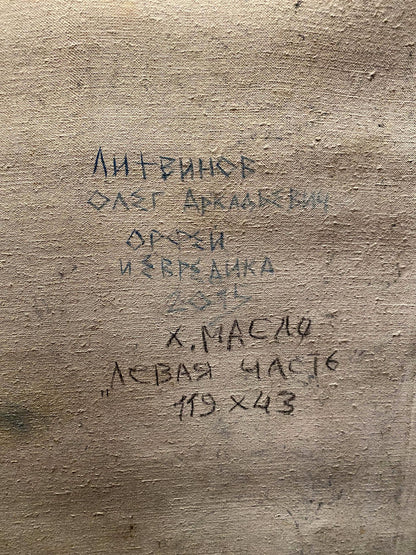 Литвинов
Олег Аркадьевич
Орфей
и Евредика
Х. Масло
"Левая часть"
119 х 43